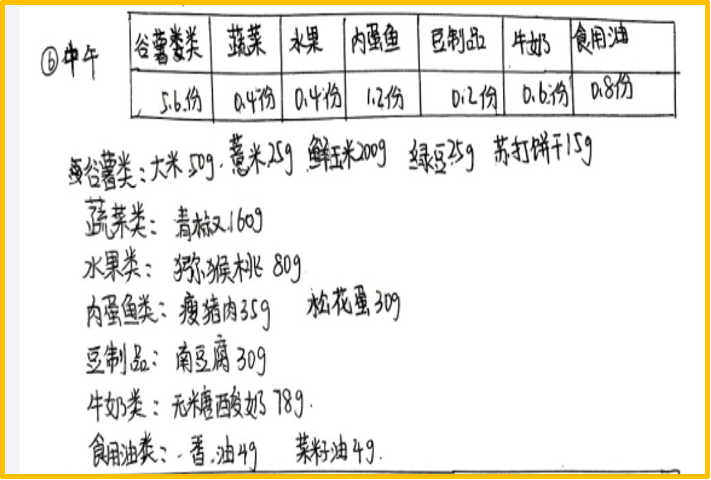 ⑥中午
谷薯类类 蔬菜 水果 肉蛋鱼 豆制品 牛奶 食用油
5.6份 0.4份 0.4份 1.2份 0.2份 0.6份 0.8份
谷薯类:大米50g. 薏米25g 鲜玉米200g 绿豆25g 苏打饼干15g
蔬菜类: 青椒160g
水果类: 猕猴桃 80g
肉蛋鱼类: 瘦猪肉35g 松花蛋30g
豆制品: 南豆腐30g
牛奶类: 无糖酸奶78g.
食用油类: 香油4g 菜籽油4g.